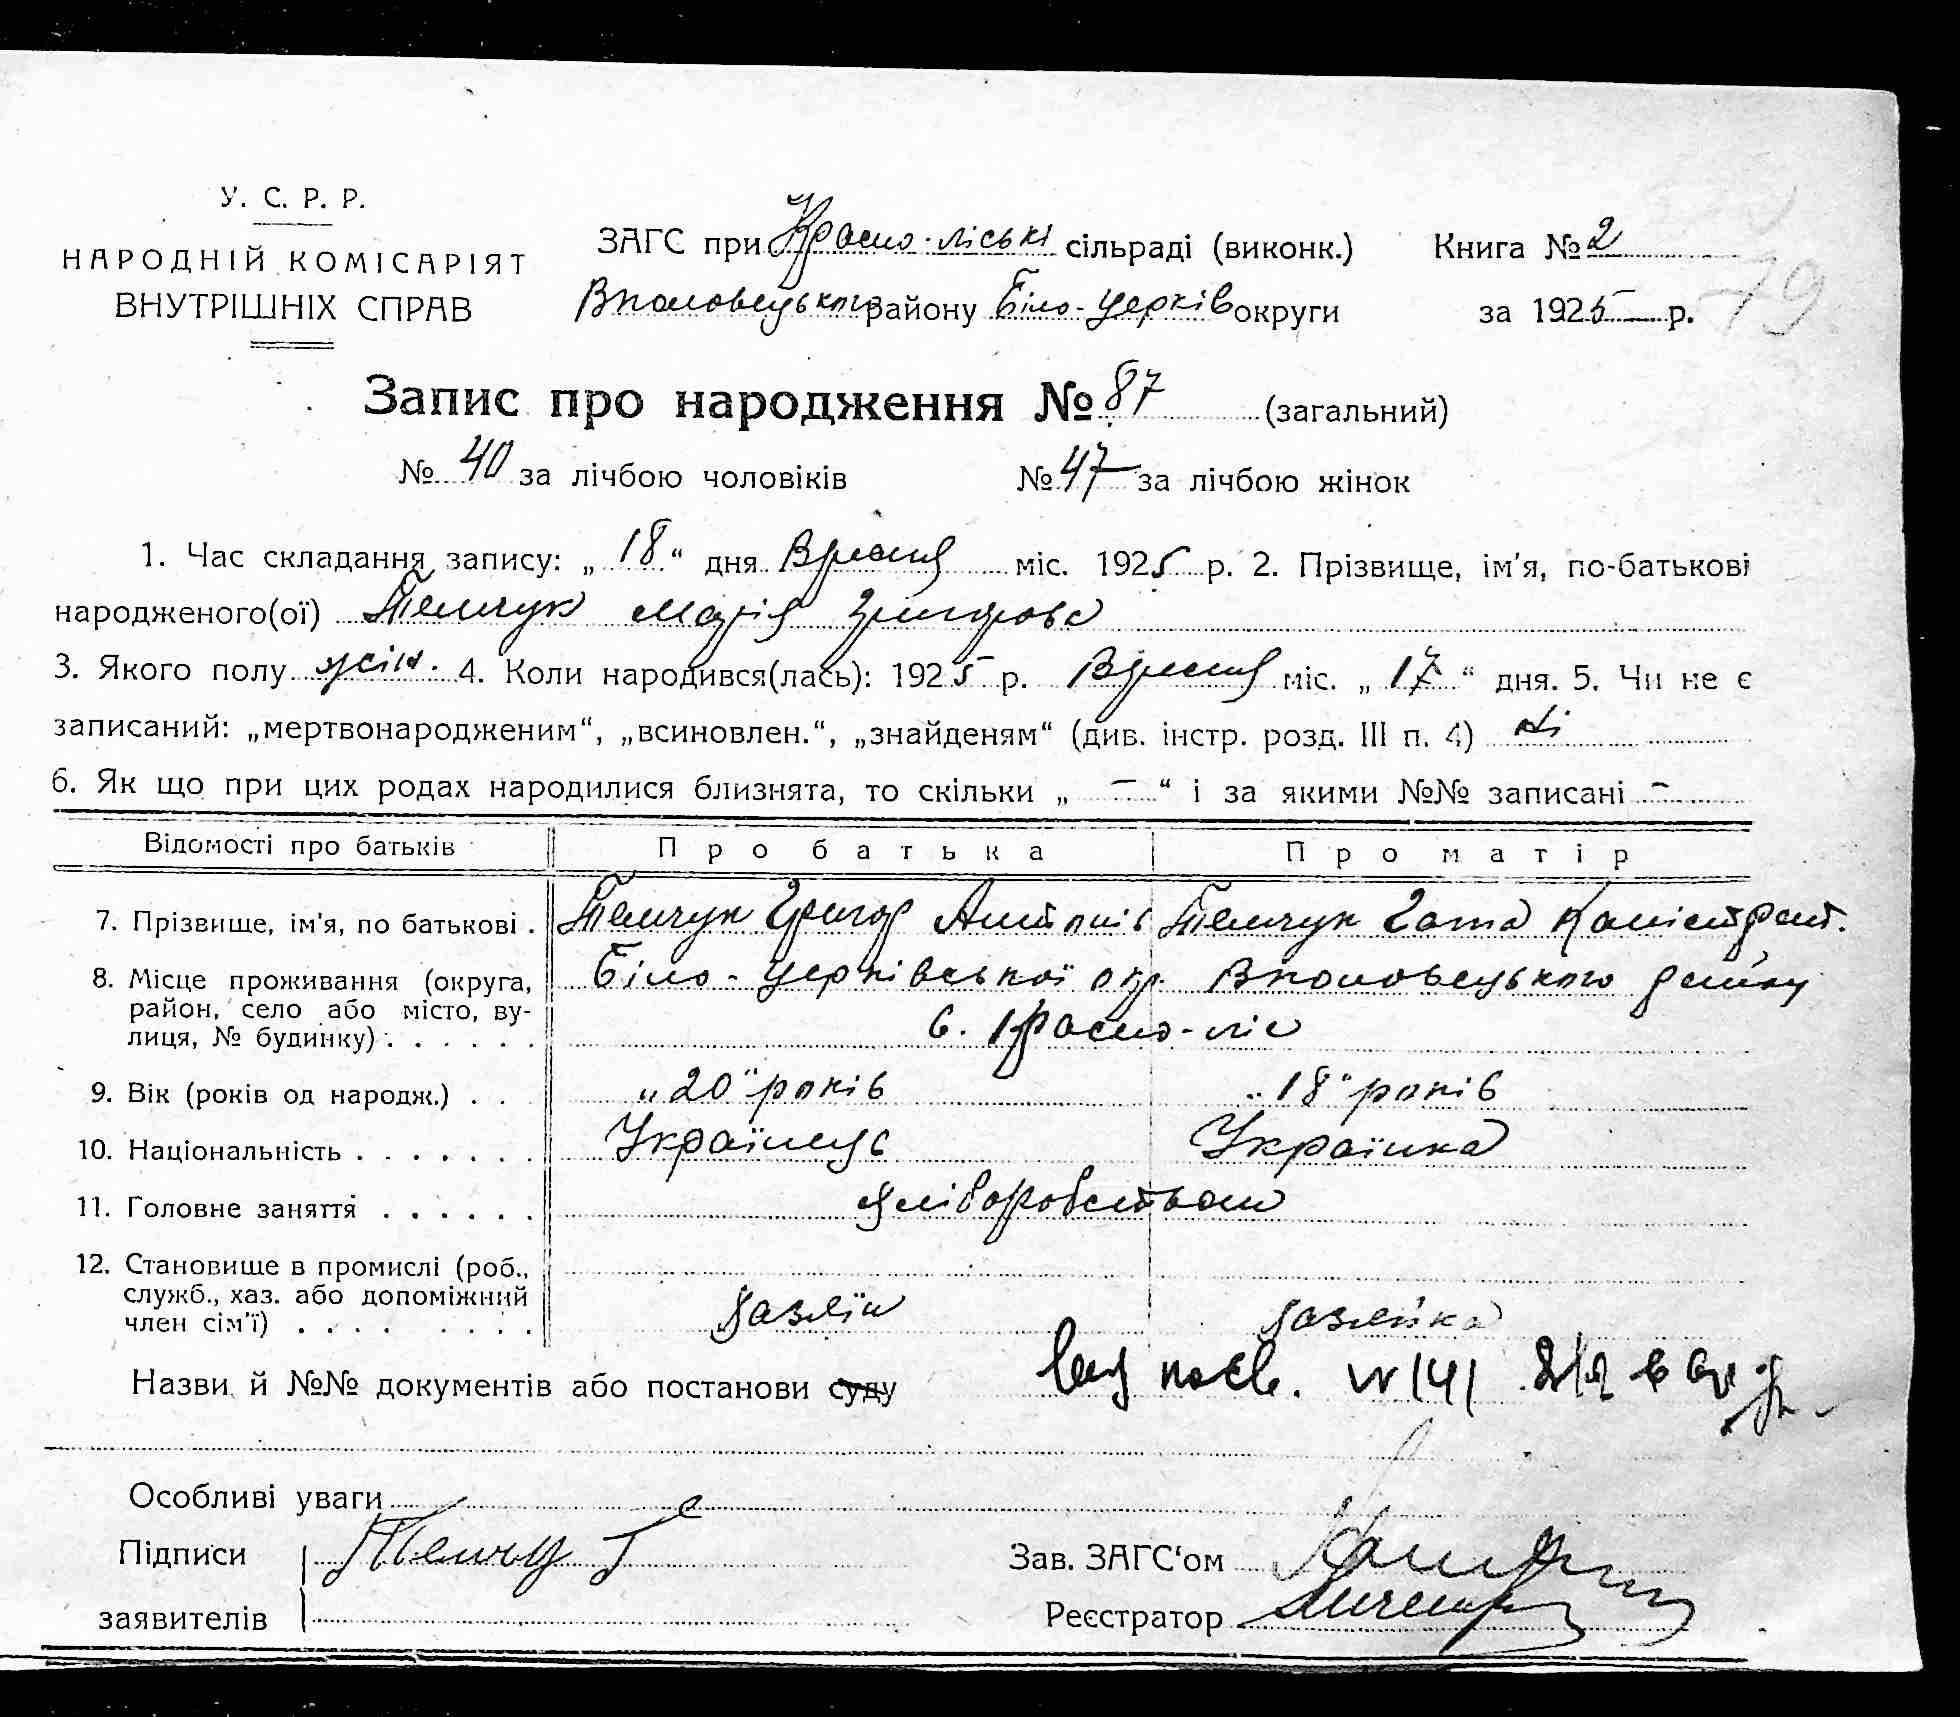 У. С. Р. Р.
НАРОДНІЙ КОМІСАРІЯТ
ВНУТРІШНІХ СПРАВ
ЗАГС при Красно-ліські сільраді (виконк.) Книга № 2
району Біло-Церків округи за 1925 р.
79
Запис про народження № 87 (загальний)
№ 40 за лічбою чоловіків № 47 за лічбою жінок
1. Час складання запису: „ 18 “ дня Вресня міс. 1925 р. 2. Прізвище, ім'я, по-батькові
народженого(ої) Темчук Марія Григорова
3. Якого полу жін. 4. Коли народився(лась): 1925 р. Вресня міс. „ 17 “ дня. 5. Чи не є
записаний: „мертвонародженим“, „всиновлен.“, „знайденям“ (див. інстр. розд. III п. 4) Ні
6. Як що при цих родах народилися близнята, то скільки „ — “ і за якими №№ записані —
Відомості про батьків Про батька Про матір
7. Прізвище, ім'я, по батькові . Темчук Григор Антонів Темчук Гата
8. Місце проживання (округа, район, село або місто, ву-лиця, № будинку) . . . . . . Біло-Церківської окр. району
с. Красно-ліс
9. Вік (років од народж.) . . „20“ років „18“ років
10. Національність . . . . . . . Українець Українка
11. Головне заняття . . . . . . хліборобством
12. Становище в промислі (роб.,
служб., хаз. або допоміжний
член сім'ї) . . . . . . . . хазяїн хазяйка
Назви й №№ документів або постанови суду
Особливі уваги
Підписи Темчук Г
заявителів
Зав. ЗАГС‘ом
Реєстратор